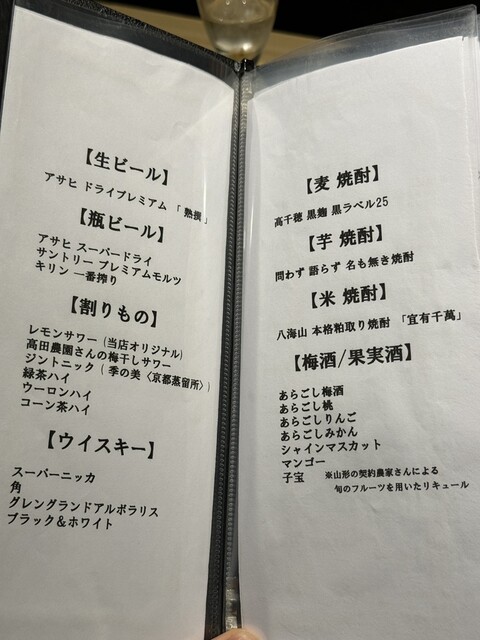 【生ビール】
アサヒ ドライプレミアム 「 熟撰 」
【瓶ビール】
アサヒ スーパードライ
サントリー プレミアムモルツ
キリン 一番搾り
【割りもの】
レモンサワー (当店オリジナル)
高田農園さんの梅干しサワー
ジントニック ( 季の美〈京都蒸留所〉)
緑茶ハイ
ウーロンハイ
コーン茶ハイ
【ウイスキー】
スーパーニッカ
角
グレングランドアルボラリス
ブラック＆ホワイト
【麦 焼酎】
高千穂 黒麹 黒ラベル25
【芋 焼酎】
問わず 語らず 名も無き焼酎
【米 焼酎】
八海山 本格粕取り焼酎 「宜有千萬」
【梅酒/果実酒】
あらごし梅酒
あらごし桃
あらごしりんご
あらごしみかん
シャインマスカット
マンゴー
子宝 ※山形の契約農家さんによる
旬のフルーツを用いたリキュール